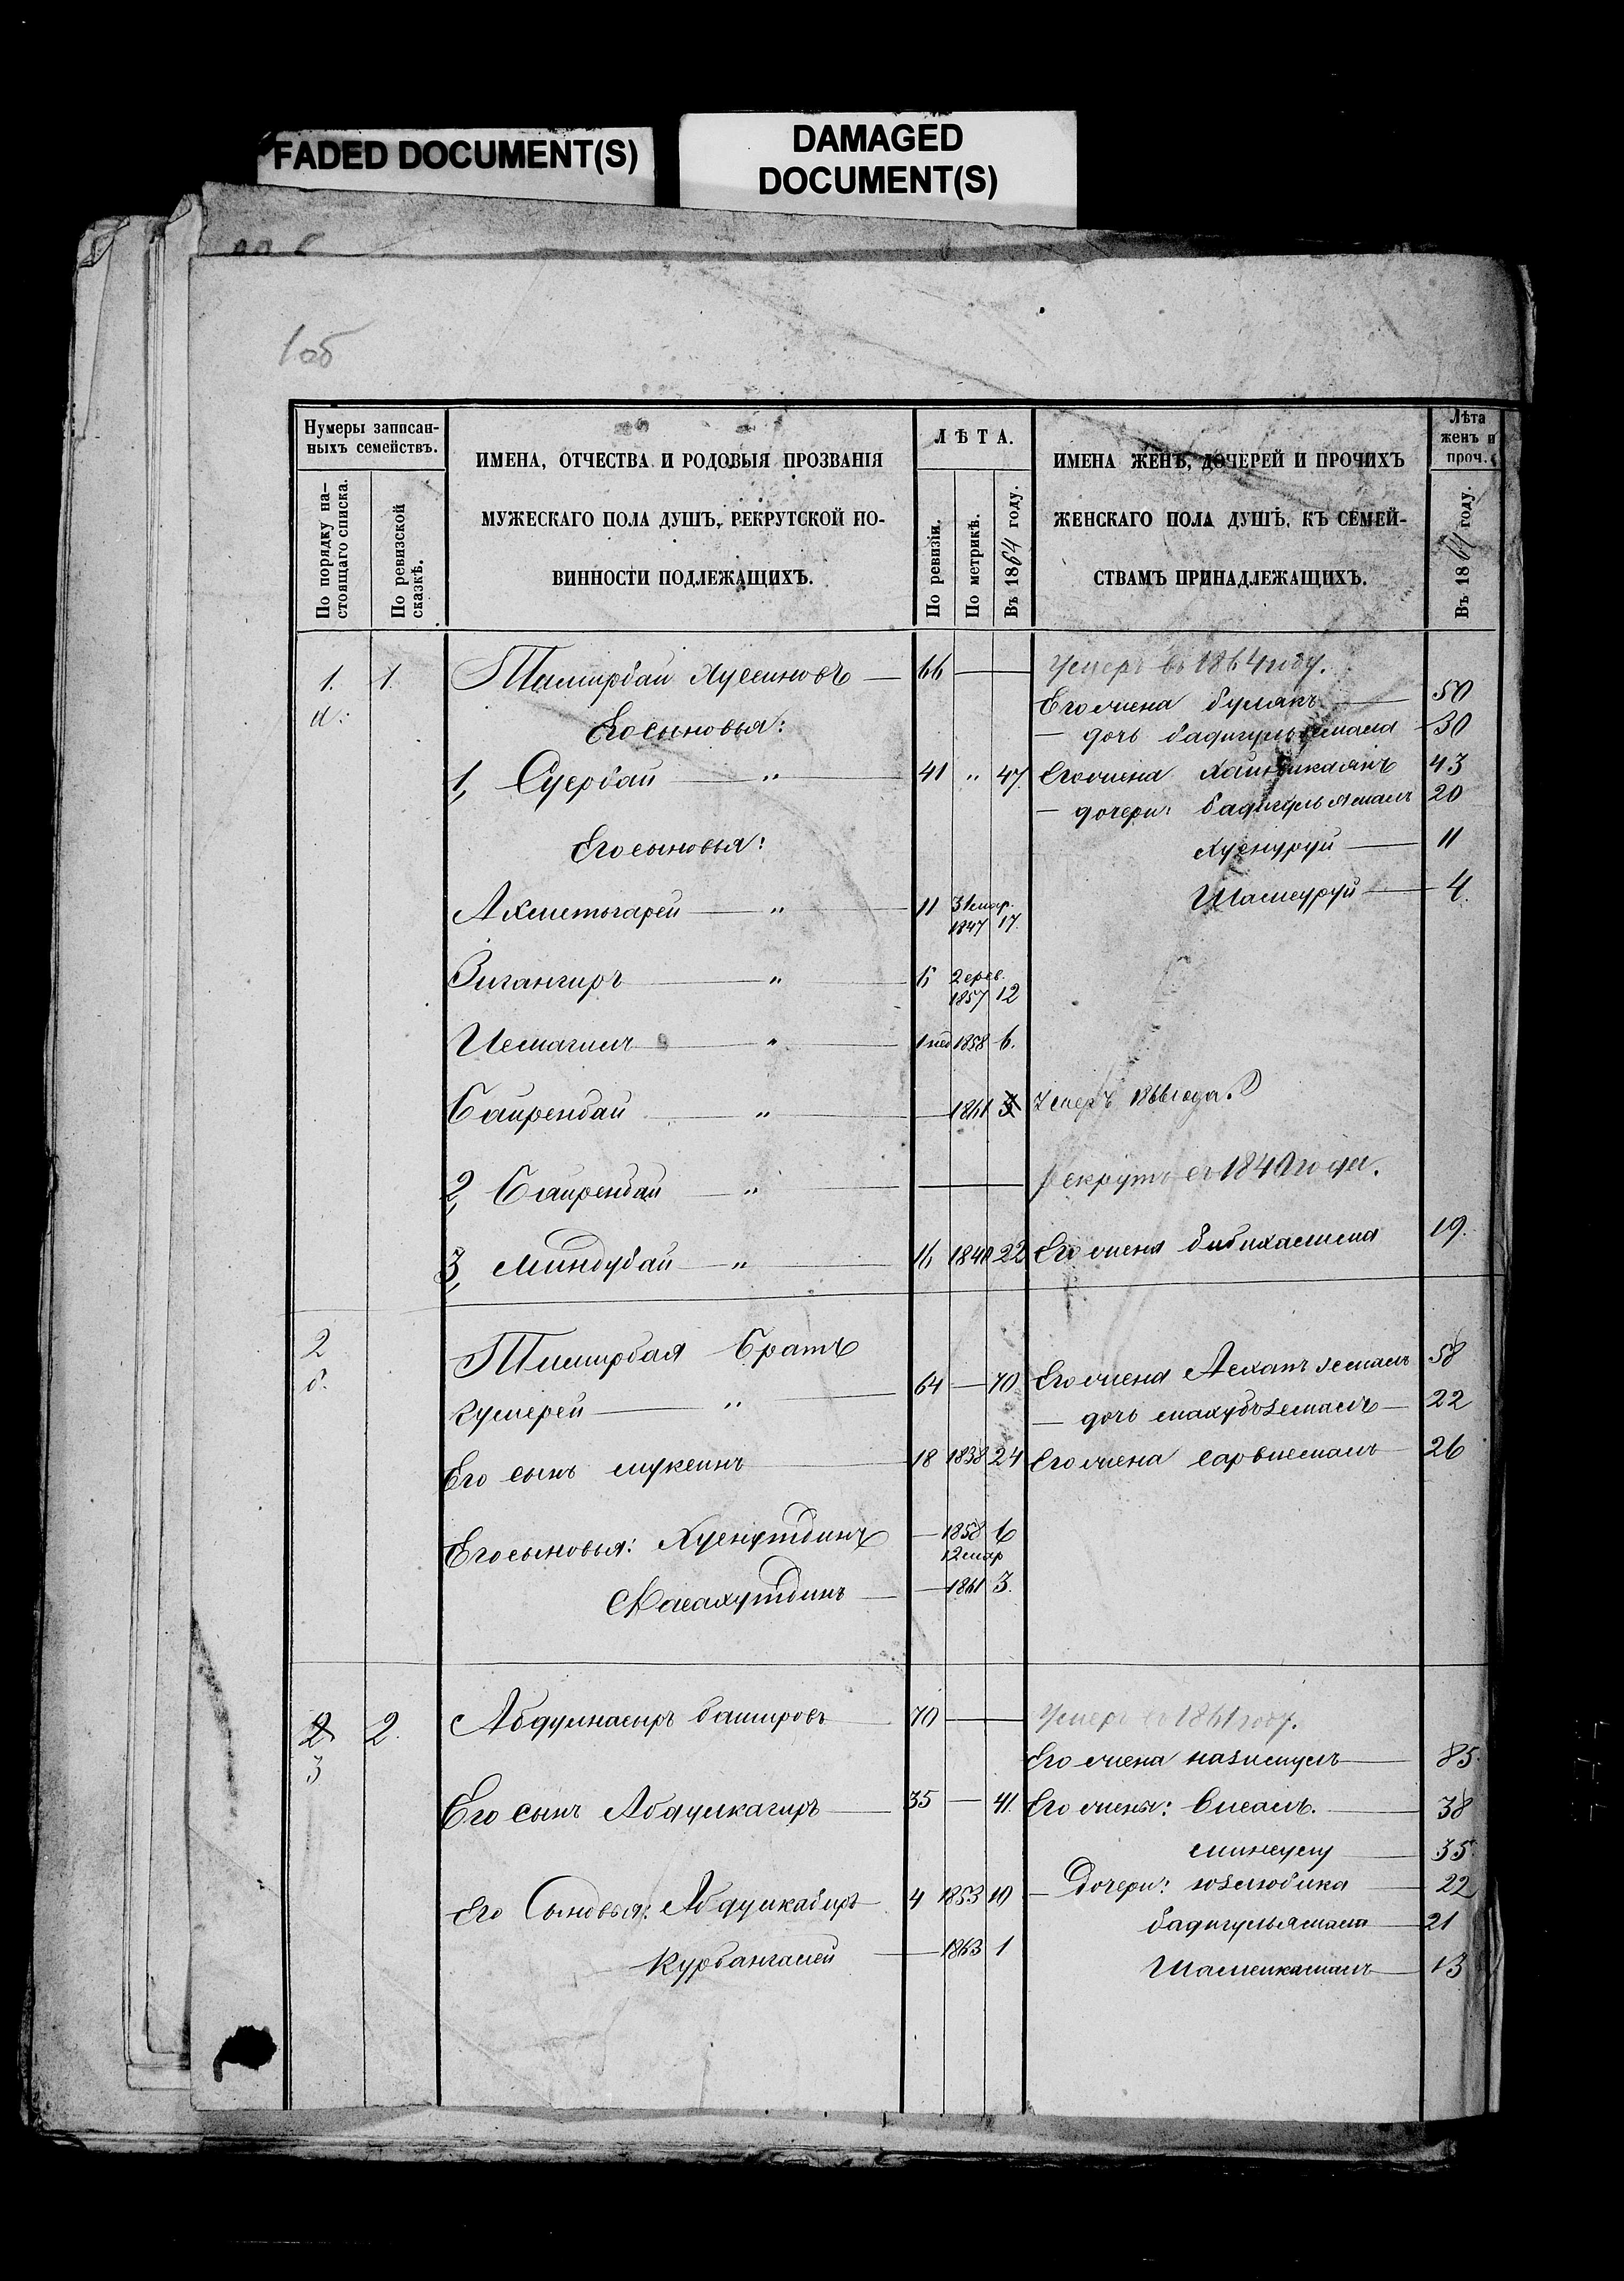 FADED DOCUMENT(S)
DAMAGED
DOCUMENT(S)
1 об
Нумеры записан-
ныхъ семействъ.
По порядку на-
стоящаго списка.
По ревизской
сказкѣ.
ИМЕНА, ОТЧЕСТВА И РОДОВЫЯ ПРОЗВАНІЯ
МУЖЕСКАГО ПОЛА ДУШЪ, РЕКРУТСКОЙ ПО-
ВИННОСТИ ПОДЛЕЖАЩИХЪ.
ЛѢТА.
По ревизіи.
По метрикѣ.
Въ 1864 году.
ИМЕНА ЖЕНЪ, ДОЧЕРЕЙ И ПРОЧИХЪ
ЖЕНСКАГО ПОЛА ДУШЪ, КЪ СЕМЕЙ-
СТВАМЪ ПРИНАДЛЕЖАЩИХЪ.
Лѣта
женъ и
проч.
Въ 1864 году.
1. 1. Хусеиновъ — 66 — — Умеръ въ 1864 году.
Его жена Булякъ — 50
Его сыновья: — дочь 30
1, Суербай — " — 41 " 47. Его жена 43
— дочери: Бадигульямалъ 20
Его сыновья: Хуснуруй — 11
Шамсуруй — 4.
Ахметьгарей — " — 11 31 мар.
1847 17.
Зигангиръ — " — 2 фев.
1857 12
Исмагилъ — " — 1 нед 1858 6.
Баирембай — " — 1861 Умеръ 1866 года.
2, Баирембай — " — — рекрутъ съ 1840 года.
3, Миндубай — " — 16 1840 22 Его жена 19.
2 Тимирбая братъ
б.
Кумерей — " — 64 — 70 Его жена 58
— дочь 22
Его сынъ — 18 1838 24 Его жена 26
Его сыновья: Хуснутдинъ — 1858 6
12 мар
— 1861 3.
2. 2. Абдулнасыръ Башировъ — 70 — — Умеръ въ 1861 году.
3 Его жена — 85.
Его сынъ Абдулкагиръ — 35 — 41. Его жены: — 38
— 35.
Его Сыновья: Абдулкабиръ — 4 1853 10 — Дочери: — 22
Бадигульямалъ — 21
Курбангалей — 1863 1 Шамсикамалъ — 13